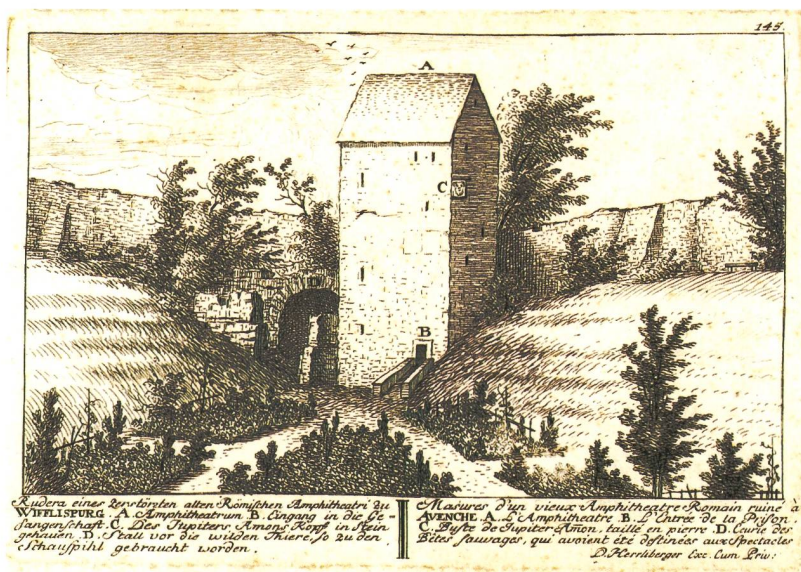 145.
A
C
B
Rudera eines zerstörten alten Römischen Amphitheatri zu
WIFFLISPURG. A. Amphitheatrum. B. Eingang in die Ge-
fangenschaft. C. Des Jupiters Amons Kopf in stein
gehauen. D. Stall vor die wilden Thiere, so zu den
Schauspihl gebraucht worden.
Masures d'un vieux Amphitheatre Romain ruiné à
AVENCHE. A. L'Amphitheatre. B. L'Entrée de la Prison.
C. Buste de Jupiter Amon, taillé en pierre. D. Ecurie des
Bêtes sauvages, qui avoient été destinées aux Spectacles
D. Herrliberger Exc. Cum Priv: